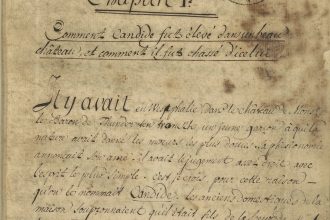 Chapitre 1.er
Comment Candide fut élevé dans un beau
château, et comment il fut chassé d'icelui
Il y avait en Westphalie dans le château de Mons.
le Baron de Thunder-ten-tronckh un jeune garçon à qui la
nature avait donné les mœurs les plus douces. sa phisionomie
annonçait son ame. il avait le jugement assez droit avec
l'esprit le plus simple. c'est je crois pour cette raison
qu'on le nommait Candide. les anciens domestiques de la
maison soupçonnaient qu'il était fils de la